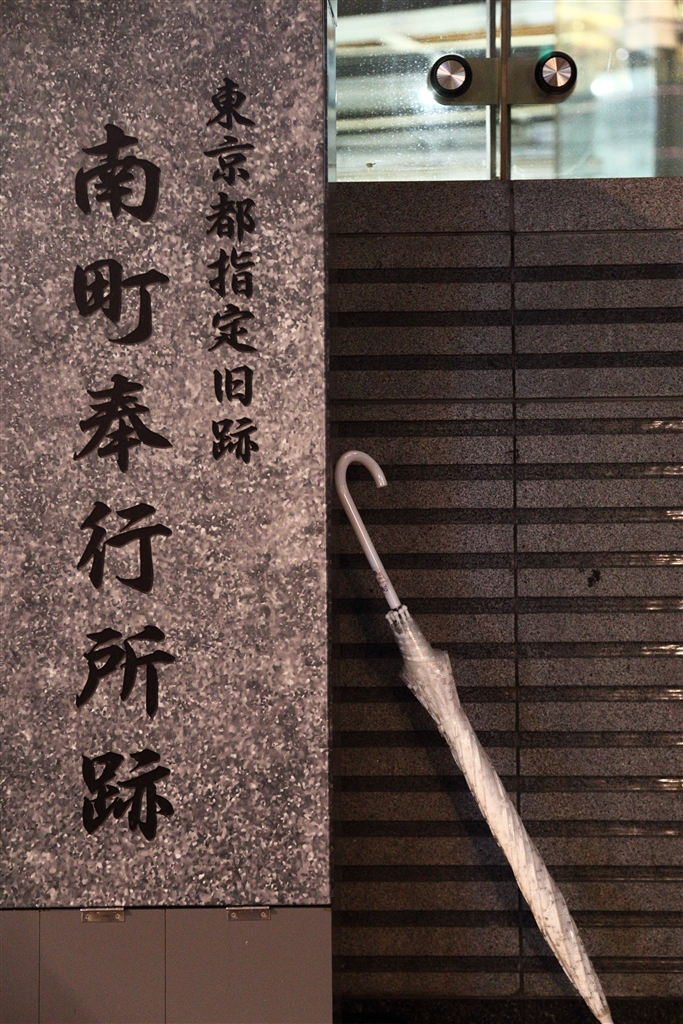 東京都指定旧跡
南町奉行所跡